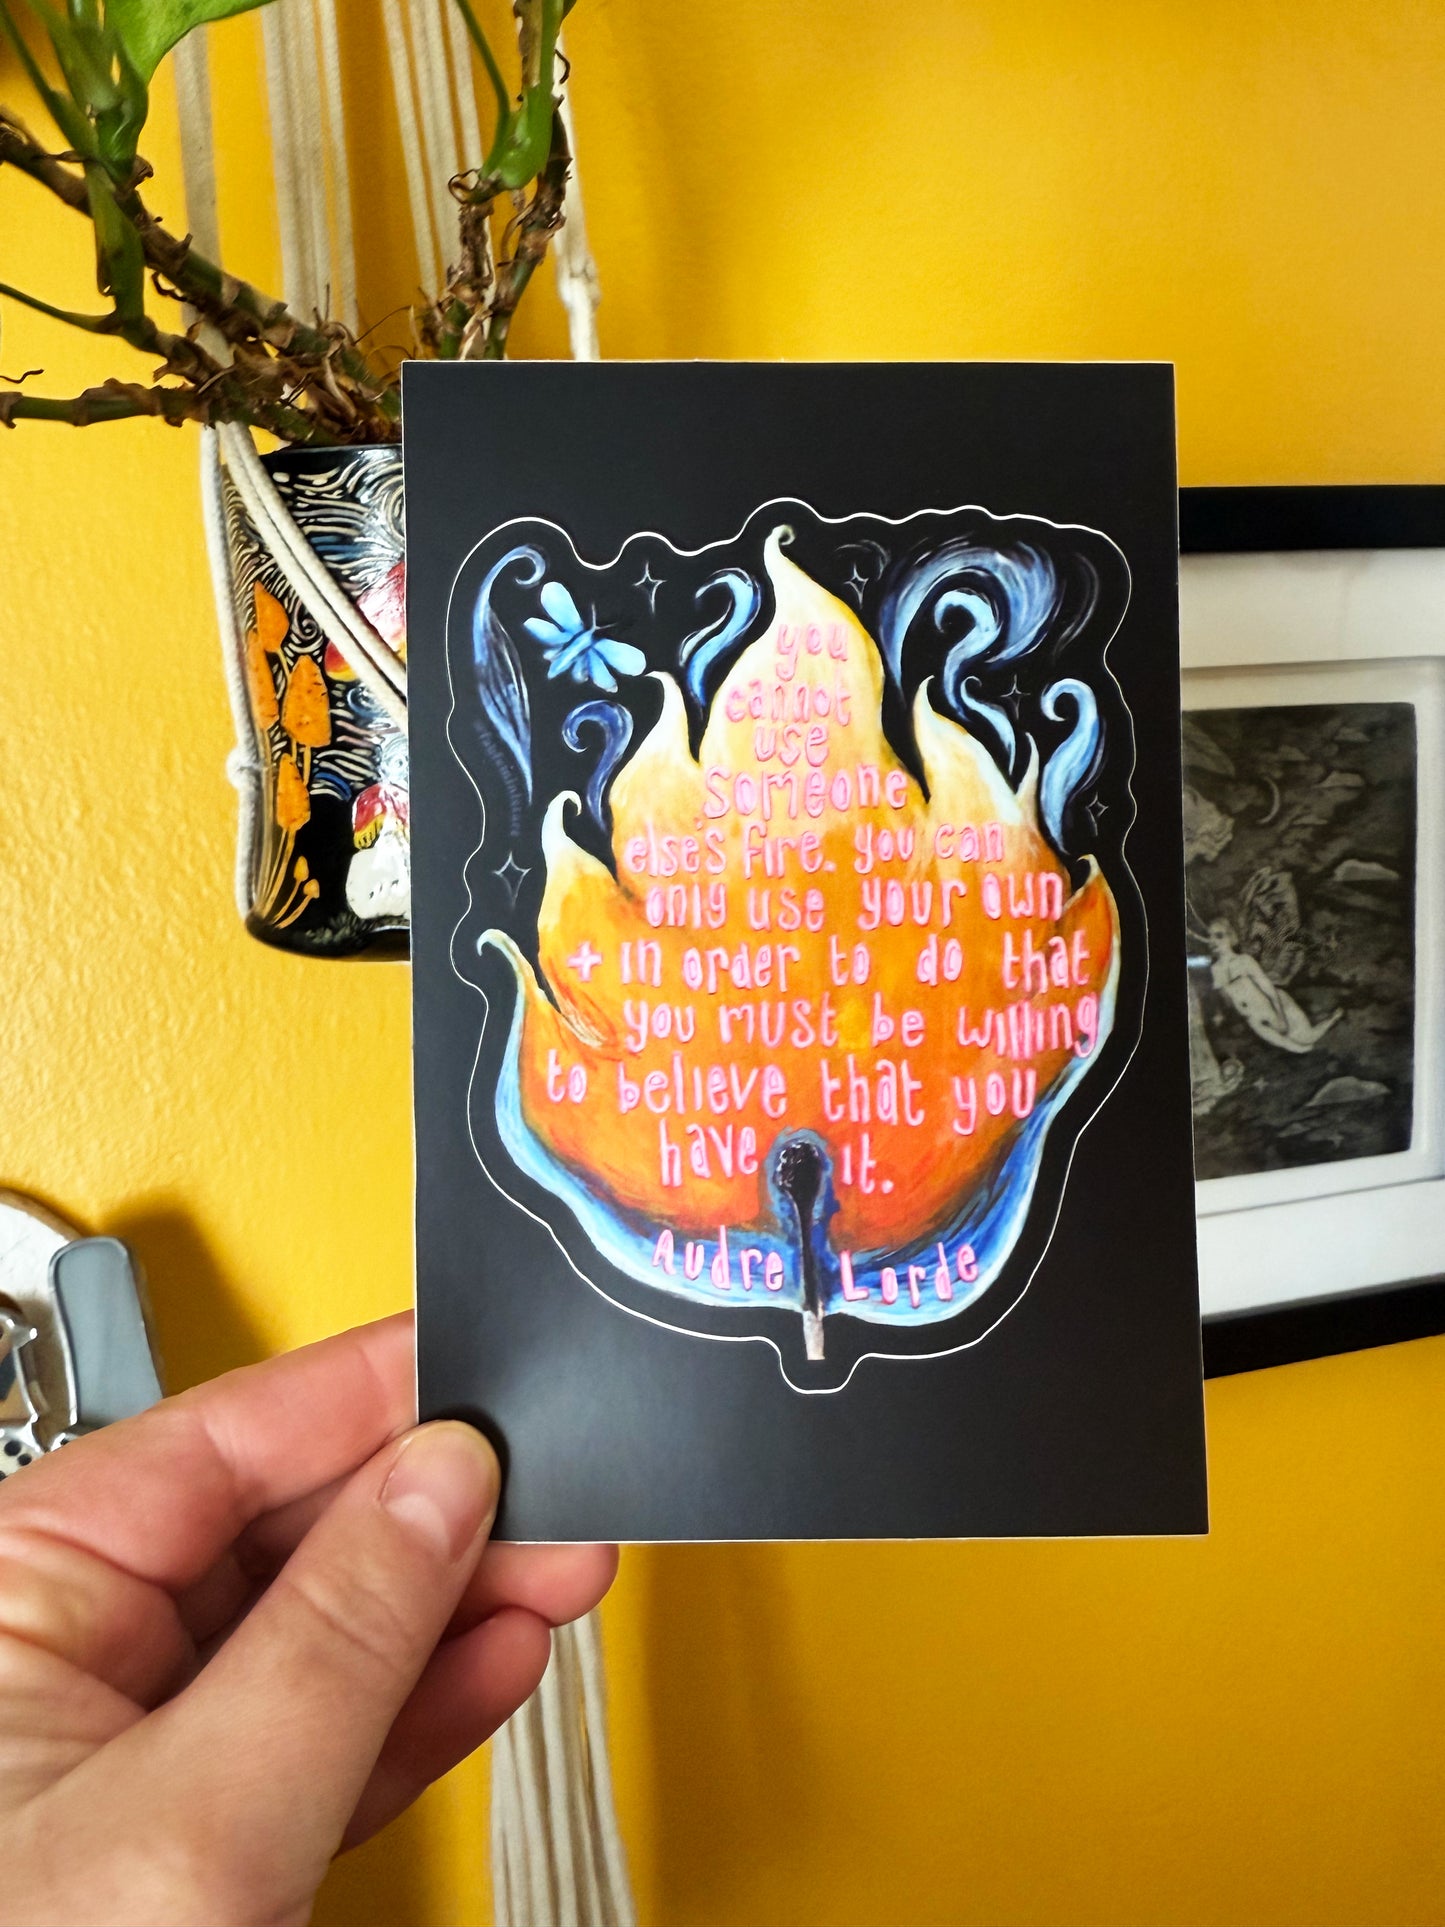 you
cannot
use
someone
else's fire. you can
only use your own
+ in order to do that
you must be willing
to believe that you
have it.
Audre Lorde